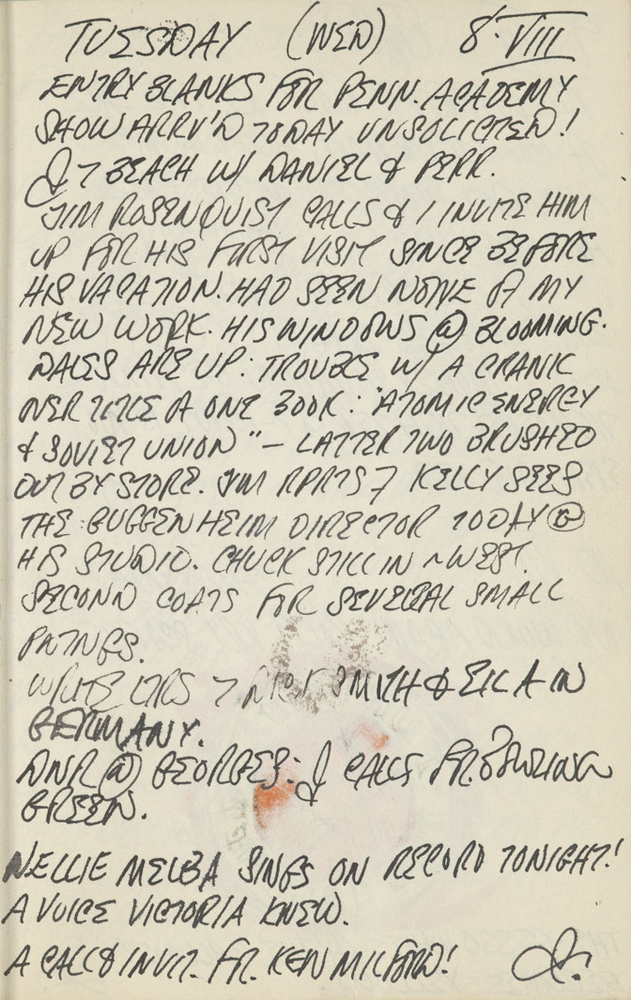 TUESDAY (WED) 8·VIII
ENTRY BLANKS FOR PENN. ACADEMY
SHOW ARRV'D TODAY UNSOLICITED!
J 7 BEACH W/ DANIEL & PERR.
JIM ROSENQUIST CALLS & I INVITE HIM
UP FOR HIS FIRST VISIT SINCE BEFORE
HIS VACATION. HAD SEEN NONE OF MY
NEW WORK. HIS WINDOWS @ BLOOMING-
DALES ARE UP: TROUBLE W/ A CRANK
OVER TITLE OF ONE BOOK: "ATOMIC ENERGY
& SOVIET UNION" – LATTER TWO BRUSHED
OUT BY STORE. JIM RPRTS 7 KELLY SEES
THE GUGGENHEIM DIRECTOR TODAY @
HIS STUDIO. CHUCK STILL IN ~WEST.
SECOND COATS FOR SEVERAL SMALL
PATNGS.
WRITE LTRS 7 DICK SMITH & IN
GERMANY.
DNR @ GEORGES: J CALLS FR. BOWLING
GREEN.
NELLIE MELBA SINGS ON RECORD TONIGHT!
A VOICE VICTORIA KNEW.
A CALL & INVIT. FR. KEN MILFORD!